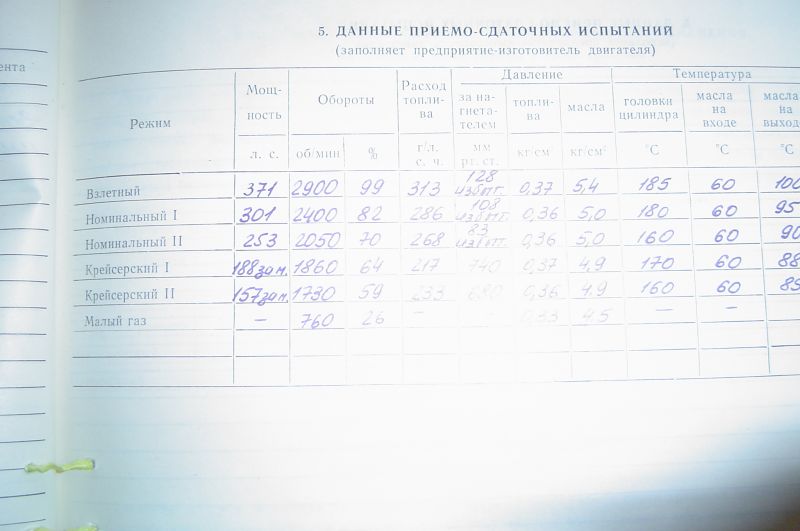 5. ДАННЫЕ ПРИЕМО-СДАТОЧНЫХ ИСПЫТАНИЙ
(заполняет предприятие-изготовитель двигателя)
ента
Режим Мощ-ность Обороты Расход топли-ва Давление Температура
за на-гнета-телем топли-ва масла головки цилиндра масла на входе масла на выходе
л. с. об/мин % г/л. с. ч. мм рт. ст. кг/см² кг/см² °С °С °С
Взлетный 371 2900 99 313 128 избыт. 0,37 5,4 185 60 100
Номинальный I 301 2400 82 286 108 избыт. 0,36 5,0 180 60 95
Номинальный II 253 2050 70 268 83 избыт. 0,36 5,0 160 60 90
Крейсерский I 188 зам. 1860 64 217 740 0,37 4,9 170 60 88
Крейсерский II 157 зам. 1730 59 233 680 0,36 4.9 160 60 85
Малый газ — 760 26 — - 0,33 4.5 — —